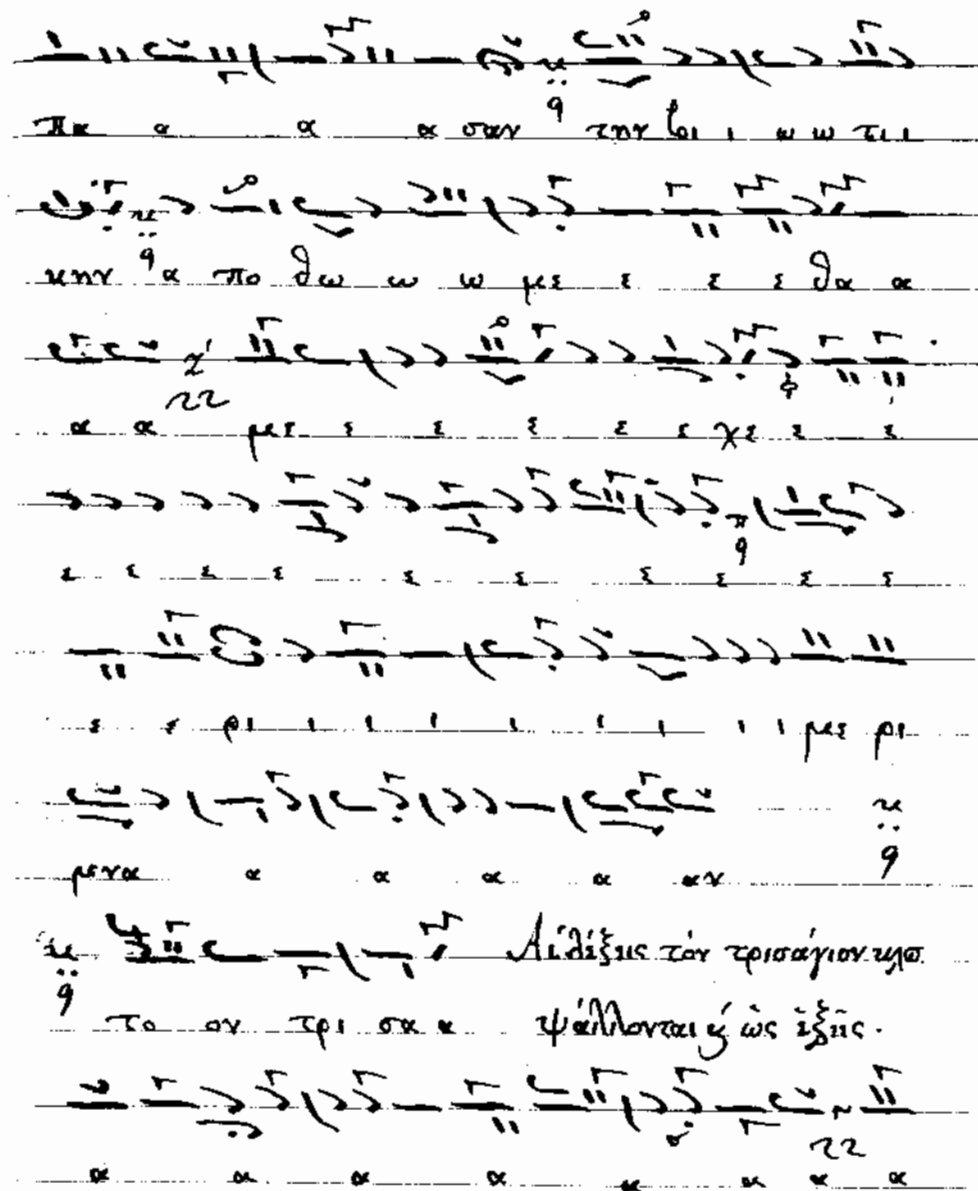 Πα α α α σαν την βι ι ω ω τι ι
κην α πο θω ω ω με ε ε ε θα α
α α με ε ε ε ε ε χε ε ε
ε ε ε ε ε ε ε ε ε ε
ε ε ρι ι ι ι ι ι ι ι ι με ρι
μενα α α α α αν
Αἱ λέξεις τὸν τρισάγιον
το ον τρι σα α ψάλλονται ὡς ἑξῆς.
α α α α α α α α